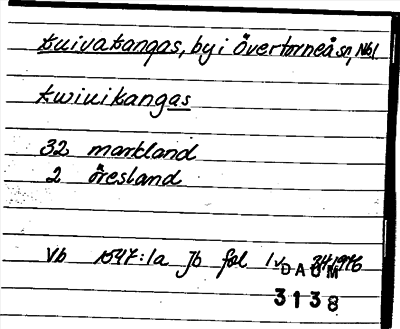 Kuivakangas, by i Övertorneå sn, Nbl.
Kwiuikangas
32 markland
2 öresland
Vb 1547:1a Jb fol 1v
DAUM
3138